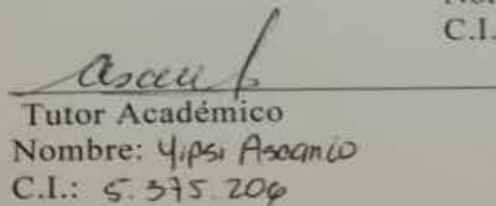 C.I.
Tutor Académico
Nombre: Yipsi Ascanio
C.I.: 5.375.206